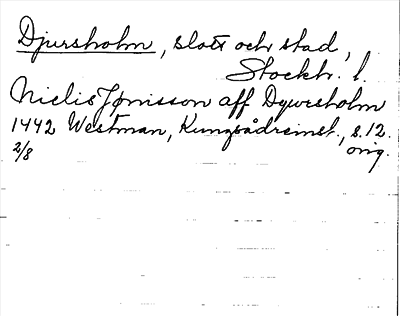 Djursholm, slott och stad,
Stockh. l.
Nielis Jønisson aff Dywrsholm
1442 Westman, Kungsådreinst., s. 12.
2/8 orig.